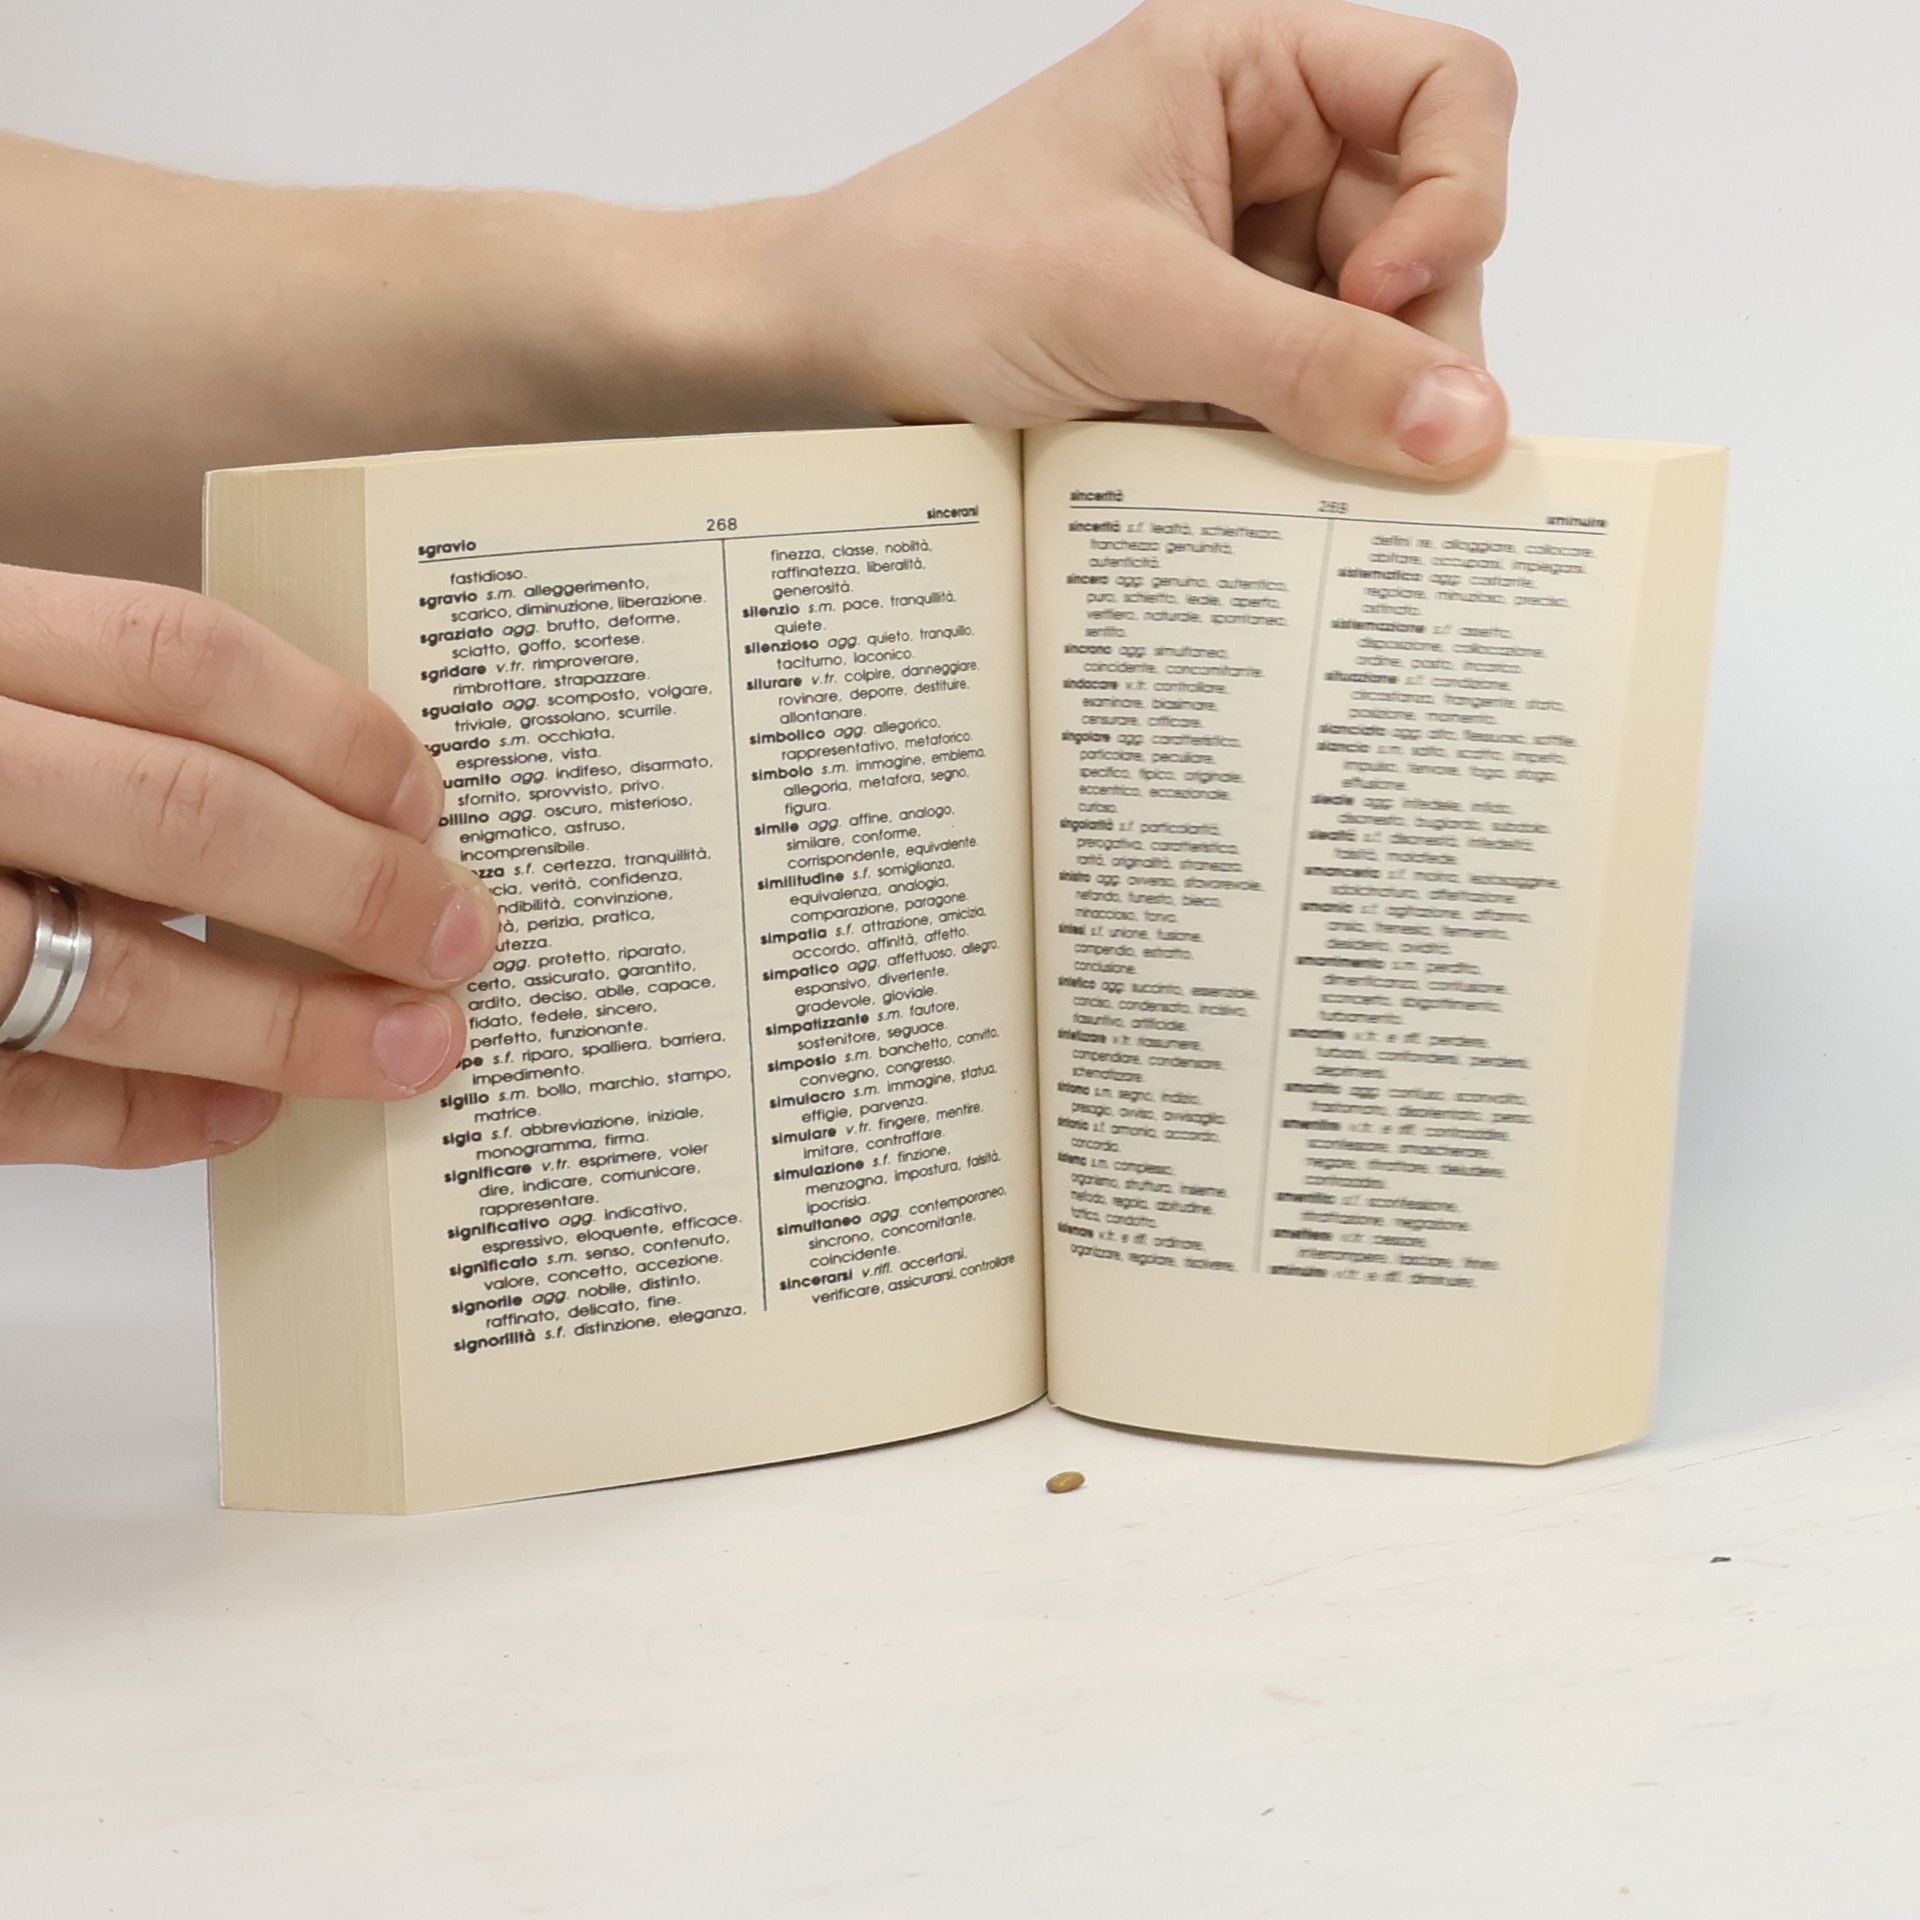 sgravio
268
sincerarsi
fastidioso.
sgravio s.m. alleggerimento,
scarico, diminuzione, liberazione.
sgraziato agg. brutto, deforme,
sciatto, goffo, scortese.
sgridare v.tr. rimproverare,
rimbrottare, strapazzare.
sguaiato agg. scomposto, volgare,
triviale, grossolano, scurrile.
guardo s.m. occhiata,
espressione, vista.
uarnito agg. indifeso, disarmato,
sfornito, sprovvisto, privo.
billino agg. oscuro, misterioso,
enigmatico, astruso,
incomprensibile.
zza s.f. certezza, tranquillità,
cia, verità, confidenza,
ndibilità, convinzione,
tà, perizia, pratica,
utezza.
agg. protetto, riparato,
certo, assicurato, garantito,
ardito, deciso, abile, capace,
fidato, fedele, sincero,
perfetto, funzionante.
pe s.f. riparo, spalliera, barriera,
impedimento.
sigillo s.m. bollo, marchio, stampo,
matrice.
sigla s.f. abbreviazione, iniziale,
monogramma, firma.
significare v.tr. esprimere, voler
dire, indicare, comunicare,
rappresentare.
significativo agg. indicativo,
espressivo, eloquente, efficace.
significato s.m. senso, contenuto,
valore, concetto, accezione.
signorile agg. nobile, distinto,
raffinato, delicato, fine.
signorilità s.f. distinzione, eleganza,
finezza, classe, nobiltà,
raffinatezza, liberalità,
generosità.
silenzio s.m. pace, tranquillità,
quiete.
silenzioso agg. quieto, tranquillo,
taciturno, laconico.
silurare v.tr. colpire, danneggiare,
rovinare, deporre, destituire,
allontanare.
simbolico agg. allegorico,
rappresentativo, metaforico.
simbolo s.m. immagine, emblema,
allegoria, metafora, segno,
figura.
simile agg. affine, analogo,
similare, conforme,
corrispondente, equivalente.
similitudine s.f. somiglianza,
equivalenza, analogia,
comparazione, paragone.
simpatia s.f. attrazione, amicizia,
accordo, affinità, affetto.
simpatico agg. affettuoso, allegro,
espansivo, divertente,
gradevole, gioviale.
simpatizzante s.m. fautore,
sostenitore, seguace.
simposio s.m. banchetto, convito,
convegno, congresso.
simulacro s.m. immagine, statua,
effigie, parvenza.
simulare v.tr. fingere, mentire,
imitare, contraffare.
simulazione s.f. finzione,
menzogna, impostura, falsità,
ipocrisia.
simultaneo agg. contemporaneo,
sincrono, concomitante,
coincidente.
sincerarsi v.rifl. accertarsi,
verificare, assicurarsi, controllare
sincerità
269
sminuire
sincerità s.f. lealtà, schiettezza,
franchezza genuinità,
autenticità.
sincero agg. genuino, autentico,
puro, schietto, leale, aperto,
veritiero, naturale, spontaneo,
sentito.
sincrono agg. simultaneo,
coincidente, concomitante.
sindacare v.tr. controllare,
esaminare, biasimare,
censurare, criticare.
singolare agg. caratteristico,
particolare, peculiare,
specifico, tipico, originale,
eccentrico, eccezionale,
curioso.
singolarità s.f. particolarità,
prerogativa, caratteristica,
rarità, originalità, stranezza.
sinistro agg. avverso, sfavorevole,
nefando, funesto, bieco,
minaccioso, torvo.
sintesi s.f. unione, fusione,
compendio, estratto,
conclusione.
sintetico agg. succinto, essenziale,
conciso, condensato, incisivo,
riassuntivo, artificiale.
sintetizzare v.tr. riassumere,
compendiare, condensare,
schematizzare.
sintomo s.m. segno, indizio,
presagio, avviso, avvisaglia.
sintonia s.f. armonia, accordo,
concordia.
sistema s.m. complesso,
organismo, struttura, insieme,
metodo, regola, abitudine,
tattica, condotta.
sistemare v.tr. e rifl. ordinare,
organizzare, regolare, risolvere,
defini re, alloggiare, collocare,
abitare, occuparsi, impiegarsi.
sistematico agg. costante,
regolare, minuzioso, preciso,
ostinato.
sistemazione s.f. assetto,
disposizione, collocazione,
ordine, posto, incarico.
situazione s.f. condizione,
circostanza, frangente, stato,
posizione, momento.
slanciato agg. alto, flessuoso, sottile.
slancio s.m. salto, scatto, impeto,
impulso, fervore, foga, sfogo,
effusione.
sleale agg. infedele, infido,
disonesto, bugiardo, subdolo.
slealtà s.f. disonestà, infedeltà,
falsità, malafede.
smanceria s.f. moina, leziosaggine,
sdolcinatura, affettazione.
smania s.f. agitazione, affanno,
ansia, frenesia, fermento,
desiderio, avidità.
smarrimento s.m. perdita,
dimenticanza, confusione,
sconcerto, sbigottimento,
turbamento.
smarrire v.tr. e rifl. perdere,
turbarsi, confondersi, perdersi,
deprimersi.
smarrito agg. confuso, sconvolto,
frastornato, disorientato, perso.
smentire v.tr. e rifl. contraddire,
sconfessare, smascherare,
negare, ritrattare, deludere,
contraddirsi.
smentita s.f. sconfessione,
ritrattazione, negazione.
smettere v.tr. cessare,
interrompere, lasciare, finire.
sminuire v.tr. e rifl. diminuire,